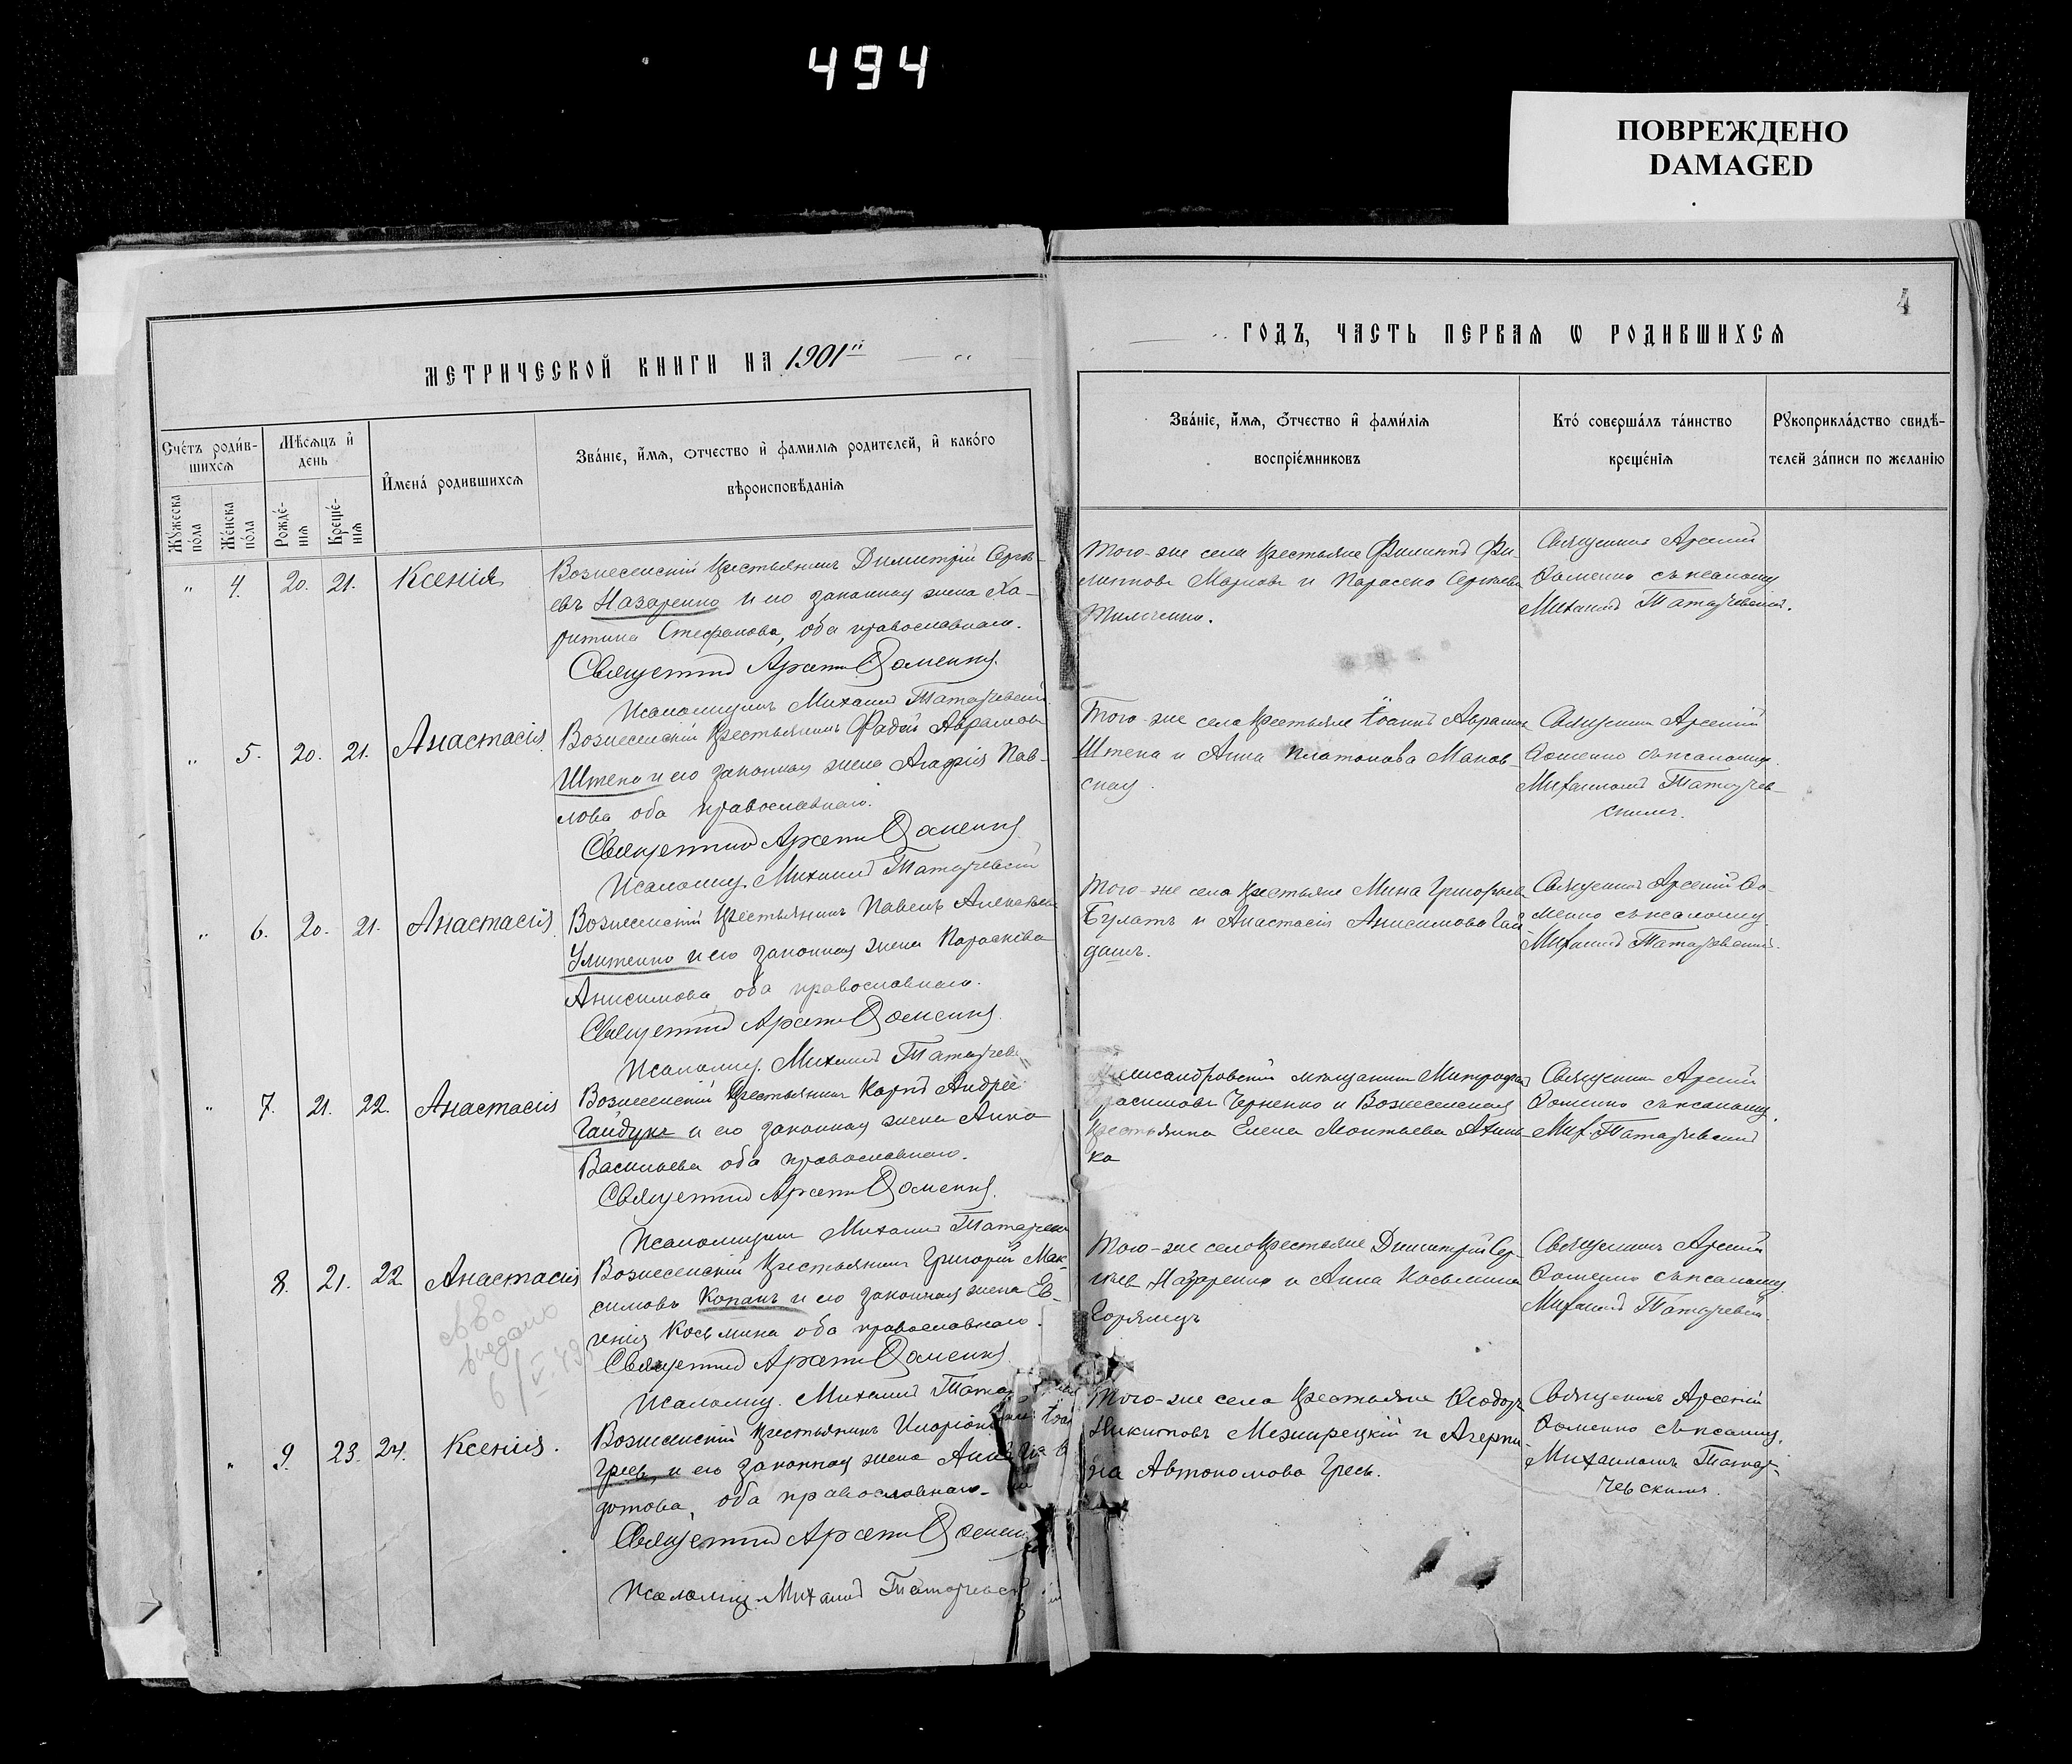 494
ПОВРЕЖДЕНО
DAMAGED
4
МЕТРИЧЕСКОЙ КНИГИ НА 1901й
ГОДЪ, ЧАСТЬ ПЕРВАЯ Ѡ РОДИВШИХСЯ
Сче́тъ роди́в-
шихся
Мѣсяцъ и҆
день
Му́жеска по́ла
Же́нска по́ла
Рожде́-
нїя
Креще́-
нїя
И҆мена́ родившихся
Зва́нїе, и҆́мя, ѻтчество и҆ фамилїя родителей, и҆ како́го
вѣроисповѣданїя
Зва́нїе, и҆́мя, ѻтчество и҆ фами́лїя
воспрїе́мниковъ
Кто̀ соверша́лъ та́инство
креще́нїя
Рукоприкла́дство свидѣ-
телей за́писи по жела́нїю
" 4. 20. 21. Ксенія
Вознесенскій крестьянинъ Димитрій Серге-
евъ Назаренко и его законная жена Ха-
ритина Стефанова, оба православнаго.
Священникъ Арсеній Ѳоменко
Псаломщикъ Михаилъ Татарчевскій
Того-же села крестьяне Филиппъ Фи-
липповъ и Параскева Сергеева
Священникъ Арсеній
Ѳоменко съ псаломщ.
Михаиломъ Татарчевскимъ.
" 5. 20. 21. Анастасія
Вознесенскій крестьянинъ Фадей Аврамовъ
Штепа и его законная жена Агафія Пав-
лова оба православнаго.
Священникъ Арсеній Ѳоменко
Псаломщ. Михаилъ Татарчевскій
Того-же села крестьяне Іоаннъ Аврамовъ
Штепа и Анна Платонова Манов-
ская.
Священникъ Арсеній
Ѳоменко съ псаломщ.
Михаиломъ Татарчев-
скимъ.
" 6. 20. 21. Анастасія.
Вознесенскій крестьянинъ Павелъ Алексеевъ
и его законная жена Параскева
Анисимова оба православнаго.
Священникъ Арсеній Ѳоменко
Псаломщ. Михаилъ Татарчев
Того-же села крестьяне Мина Григорьевъ
Булатъ и Анастасія Анисимова Гай
дашъ.
Священникъ Арсеній Ѳо-
менко съ псаломщ.
Михаиломъ Татарчевскимъ.
" 7. 21. 22. Анастасія
Вознесенскій крестьянинъ Карпъ Андрее
Гайдукъ и его законная жена Анна
Васильева оба православнаго.
Священникъ Арсеній Ѳоменко
Псаломщикъ Михаилъ Татарчевск
лександровскій мѣщанинъ Митрофанъ
расимовъ Черненко и Вознесенская
крестьянка Елена Леонтьева
ка
Священникъ Арсеній
Ѳоменко съ псаломщ.
Мих. Татарчевскимъ
8. 21. 22. Анастасія
Вознесенскій крестьянинъ Григорій Мак-
симовъ Копанъ и его законная жена Ев-
генія Косьмина оба православнаго.
Священникъ Арсеній Ѳоменко
Псаломщ. Михаилъ Тата
Того-же села крестьяне Димитрій Сер-
геевъ Назаренко и Анна Косьмина
Горянецъ
Священникъ Арсеній
Ѳоменко съ псаломщ.
Михаиломъ Татарчевск.
св-во
выдано
6/V
" 9. 23. 24. Ксенія.
Вознесенскій крестьянинъ Иларіонъ
Гресь, и его законная жена Анна
дотова, оба православнаго
Священникъ Арсеній Ѳоменк
Псаломщ. Михаилъ Татарчевск
Того-же села крестьяне Ѳеодоръ
Никитовъ Межирецкій и Агрипи-
на Автономова Гресь.
Священникъ Арсеній
Ѳоменко съ псаломщ.
Михаиломъ Татар-
чевскимъ.